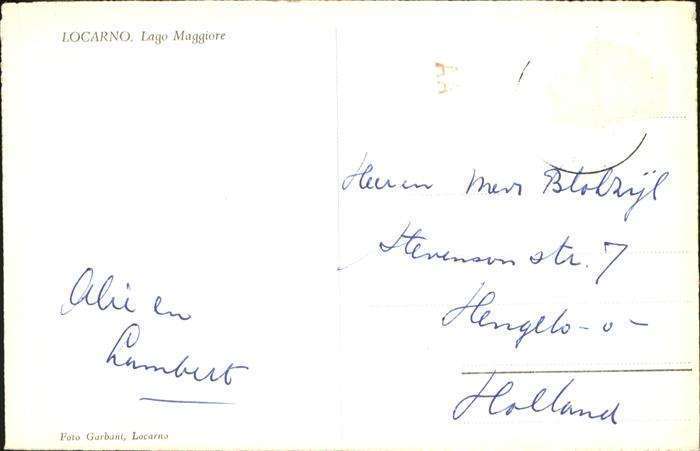 LOCARNO. Lago Maggiore
AA
Alie en
Lambert
Foto Garbani, Locarno
Heer en Mevr Blokzijl
Stevenson str. 7
Hengelo - o -
Holland